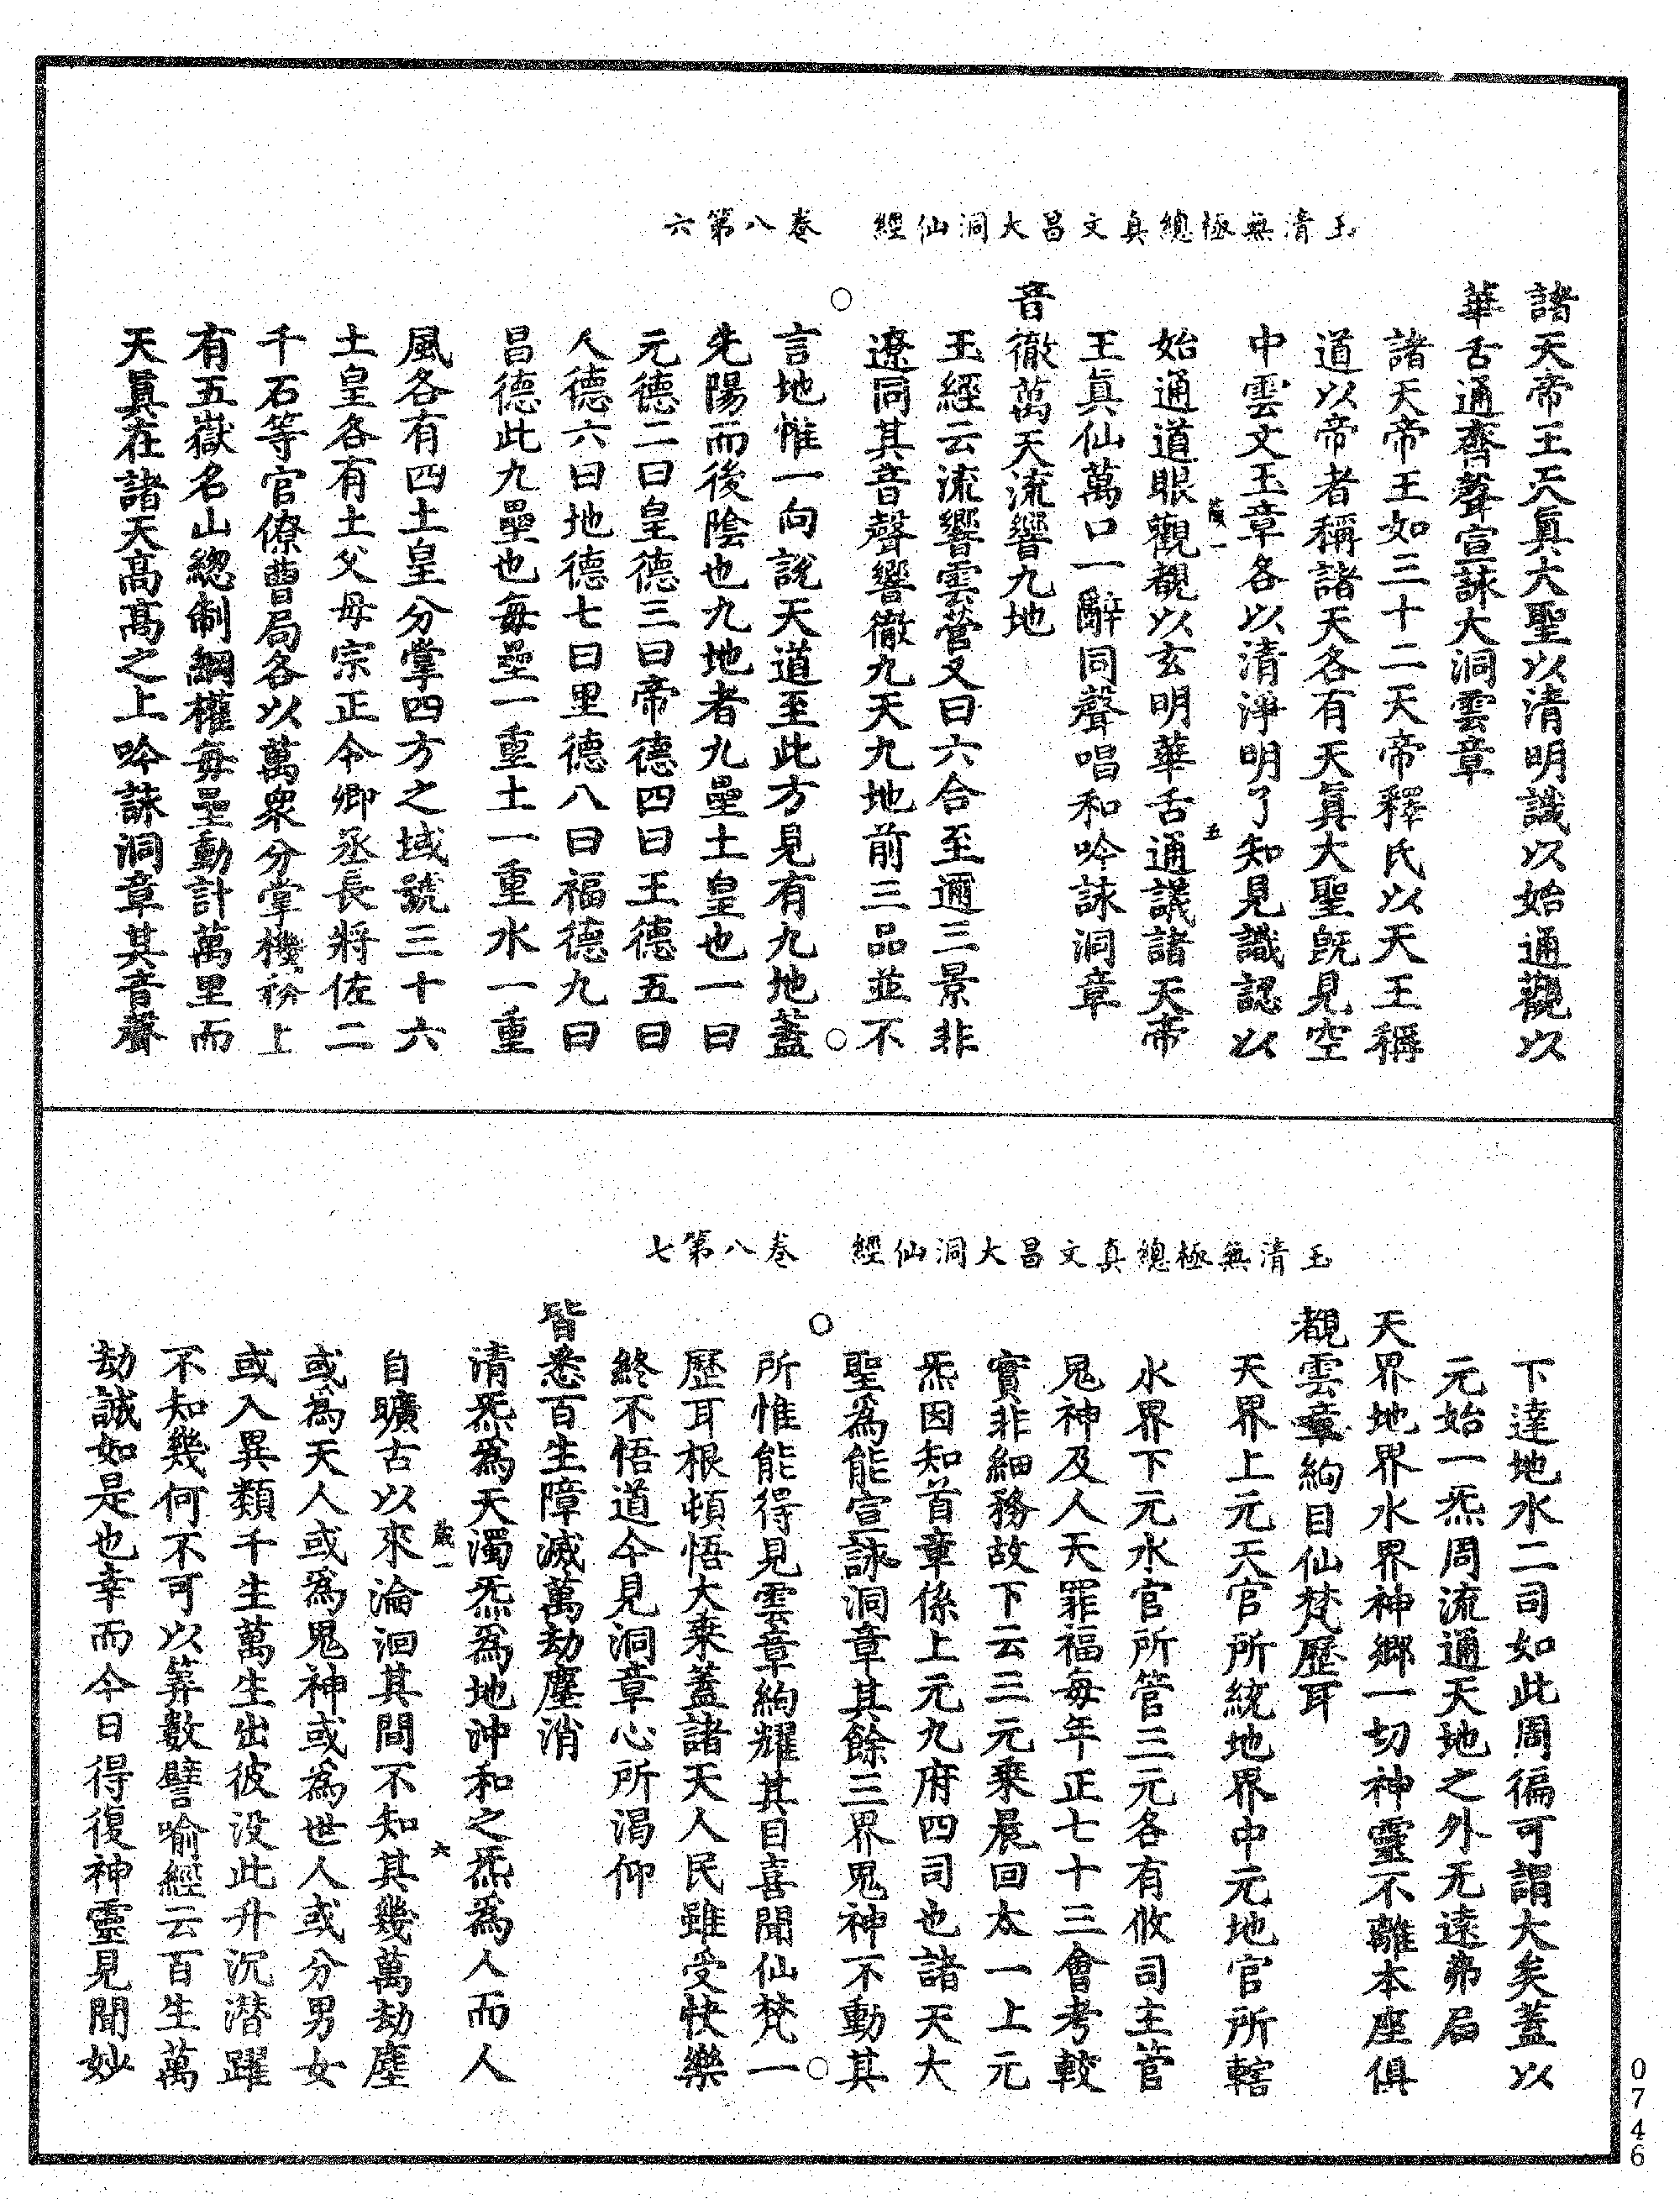 玉清無極總真文昌大洞仙經　卷八第六
諸天帝王天真大聖以清明識以始通觀以
華舌通齊聲宣詠大洞雲章
諸天帝王如三十二天帝釋氏以天王稱
道以帝者稱諸天各有天真大聖旣見空
中雲文玉章各以清淨明了知見識認以
始通道眼觀覩以玄明華舌通議諸天帝
王眞仙萬口一辭同聲唱和吟詠洞章
音徹萬天流響九地
玉經云流響雲營又曰六合至邇三景非
遼同其音聲響徹九天九地前三品並不
言地惟一向說天道至此方見有九地蓋
先陽而後陰也九地者九壘土皇也一曰
元德二曰皇德三曰帝德四曰王德五曰
人德六曰地德七曰里德八曰福德九曰
昌德此九壘也每壘一重土一重水一重
風各有四土皇分掌四方之域號三十六
土皇各有土父母宗正令卿丞長將佐二
千石等官僚曹局各以萬衆分掌機務上
有五嶽名山總制綱權每壘動計萬里而
天真在諸天高高之上吟詠洞章其音聲
玉清無極總真文昌大洞仙經　卷八第七
下達地水二司如此周徧可謂大矣蓋以
元始一炁周流通天地之外无遠弗屆
天界地界水界神鄉一切神靈不離本座俱
覩雲章絢目仙梵歷耳
天界上元天官所統地界中元地官所轄
水界下元水官所管三元各有攸司主管
鬼神及人天罪福每年正七十三會考較
實非細務故下云三元乘晨回太一上元
炁因知首章係上元九府四司也諸天大
聖為能宣詠洞章其餘三界鬼神不動其
所惟能得見雲章絢耀其目喜聞仙梵一
歷耳根頓悟大乘蓋諸天人民雖受快樂
終不悟道今見洞章心所渴仰
皆悉百生障滅萬劫塵消
清炁為天濁炁為地沖和之炁為人而人
自曠古以來淪洄其間不知其幾萬劫塵
或為天人或為鬼神或為世人或分男女
或入異類千生萬生出彼没此升沉潜躍
不知幾何不可以筭數譬喻經云百生萬
劫誠如是也幸而今日得復神靈見聞妙
0746